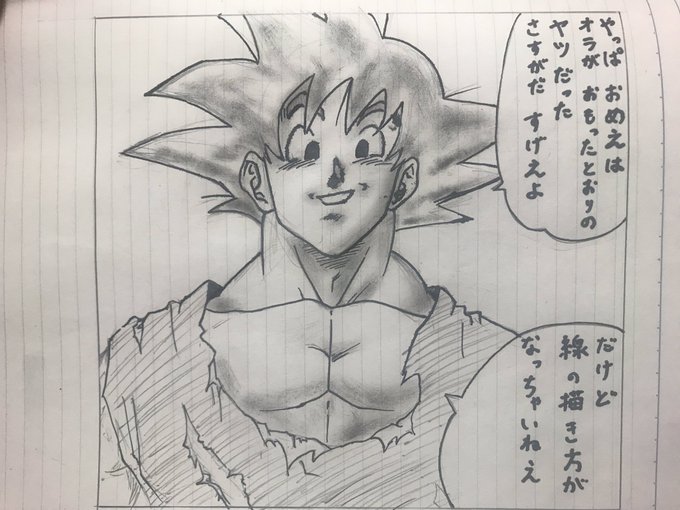 やっぱ おめえは
オラが おもったとおりの
ヤツだった
さすがだ すげえよ
だけど
線の描き方が
なっちゃいねえ